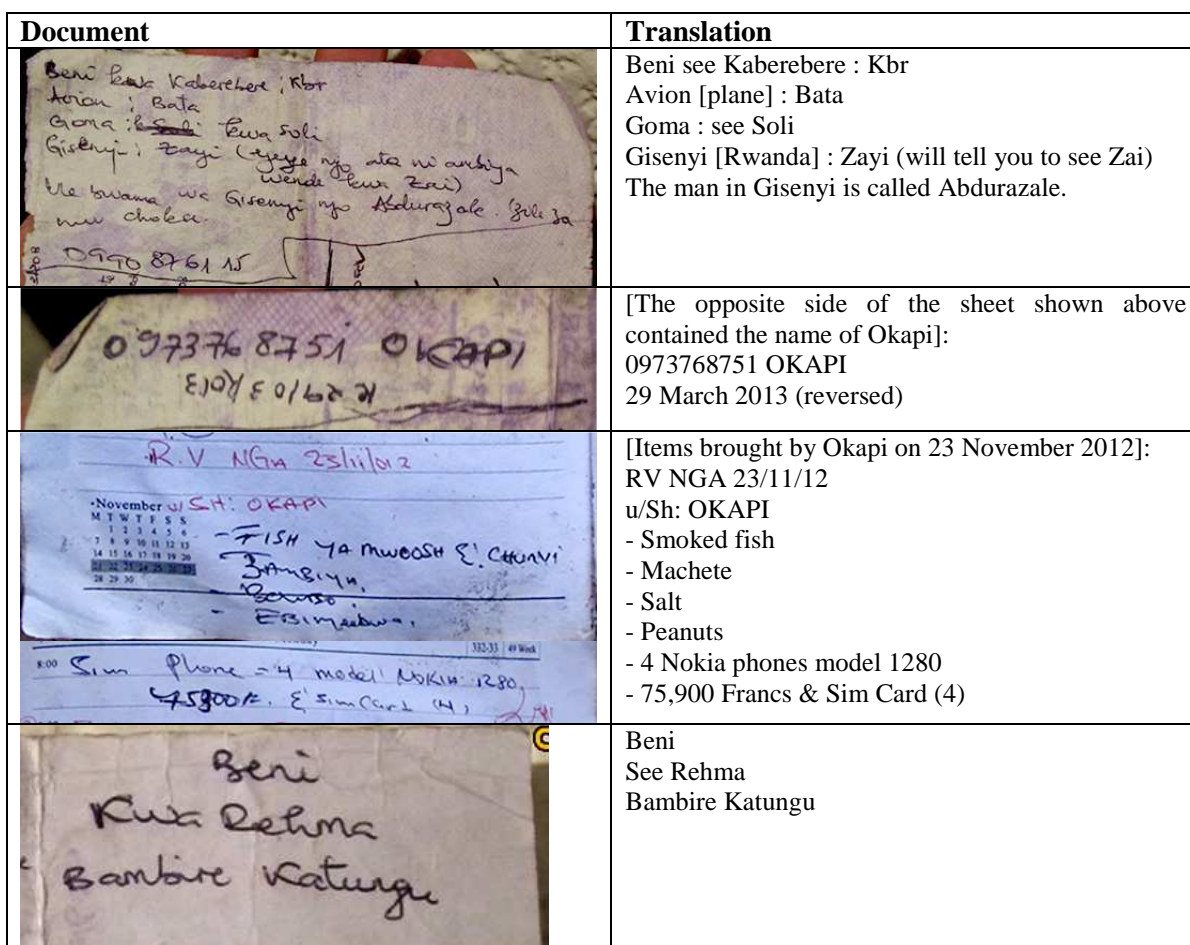 Document
Translation
Beni kwa Kaberebere ; Kbr
Avion ; Bata
Goma : kwa Soli
Gisenyi : Zayi (yeye njo ata ni ambiya
wende kwa Zai)
bwama wa Gisenyi njo Abdurazale.
choka.
0990 8761 15
Beni see Kaberebere : Kbr
Avion [plane] : Bata
Goma : see Soli
Gisenyi [Rwanda] : Zayi (will tell you to see Zai)
The man in Gisenyi is called Abdurazale.
0973768751 OKAPI
29/03 2013
[The opposite side of the sheet shown above
contained the name of Okapi]:
0973768751 OKAPI
29 March 2013 (reversed)
R.V NGA 23/11/012
November u/SH: OKAPI
M T W T F S S
1 2 3 4 5 6
7 8 9 10 11 12 13
14 15 16 17 18 19 20
21 22 23 24 25 26 27
28 29 30
- FISH YA MWOOSH & CHUNVI
- 
- 
- EBimyebwa.
332-33 49 Week
8:00 Sim Phone = 4 model NOKIA 1280,
75900F. & Sim Card (4)
[Items brought by Okapi on 23 November 2012]:
RV NGA 23/11/12
u/Sh: OKAPI
- Smoked fish
- Machete
- Salt
- Peanuts
- 4 Nokia phones model 1280
- 75,900 Francs & Sim Card (4)
Beni
Kwa Rehma
Bambire Katungu
Beni
See Rehma
Bambire Katungu